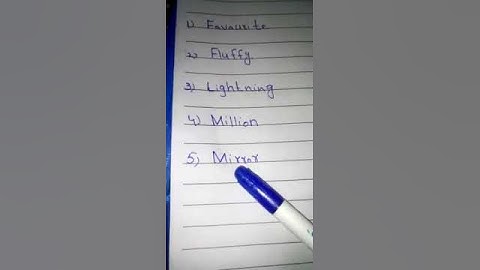 1) Favourite
2) Fluffy
3) Lightning
4) Million
5) Mirror